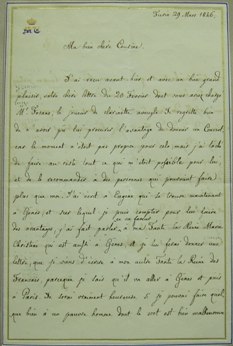 Turin 29 Mars 1846.
Ma bien chère Cousine.
J'ai reçu avant hier et avec un bien grand
plaisir, votre chère lettre du 20 Février dont vous aviez chargé
Mr. le joueur de clarinette aveugle. Je regrette bien
de n'avoir pu lui procurer l'avantage de donner un Concert,
car le moment n'était pas propice pour cela mais j'ai tâché
de faire au reste tout ce qui m'était possible pour lui
et de le recommander à des personnes qui pourraient faire
plus que moi. J'ai écrit à Eugène qui se trouve maintenant
à Gènes et sur lequel je puis compter pour lui faire
des avantages, j'ai fait parler à ma Tante la Reine Marie
Christine qui est aussi à Gènes et je lui ferai donner une
lettre que je viens d'écrire à mon autre Tante la Reine des
Français parceque je sais qu'il va aller à Gènes et puis
à Paris. Je serai vraiment heureuse si je pouvais faire quel
que bien à ce pauvre homme dont le sort est bien malheureux